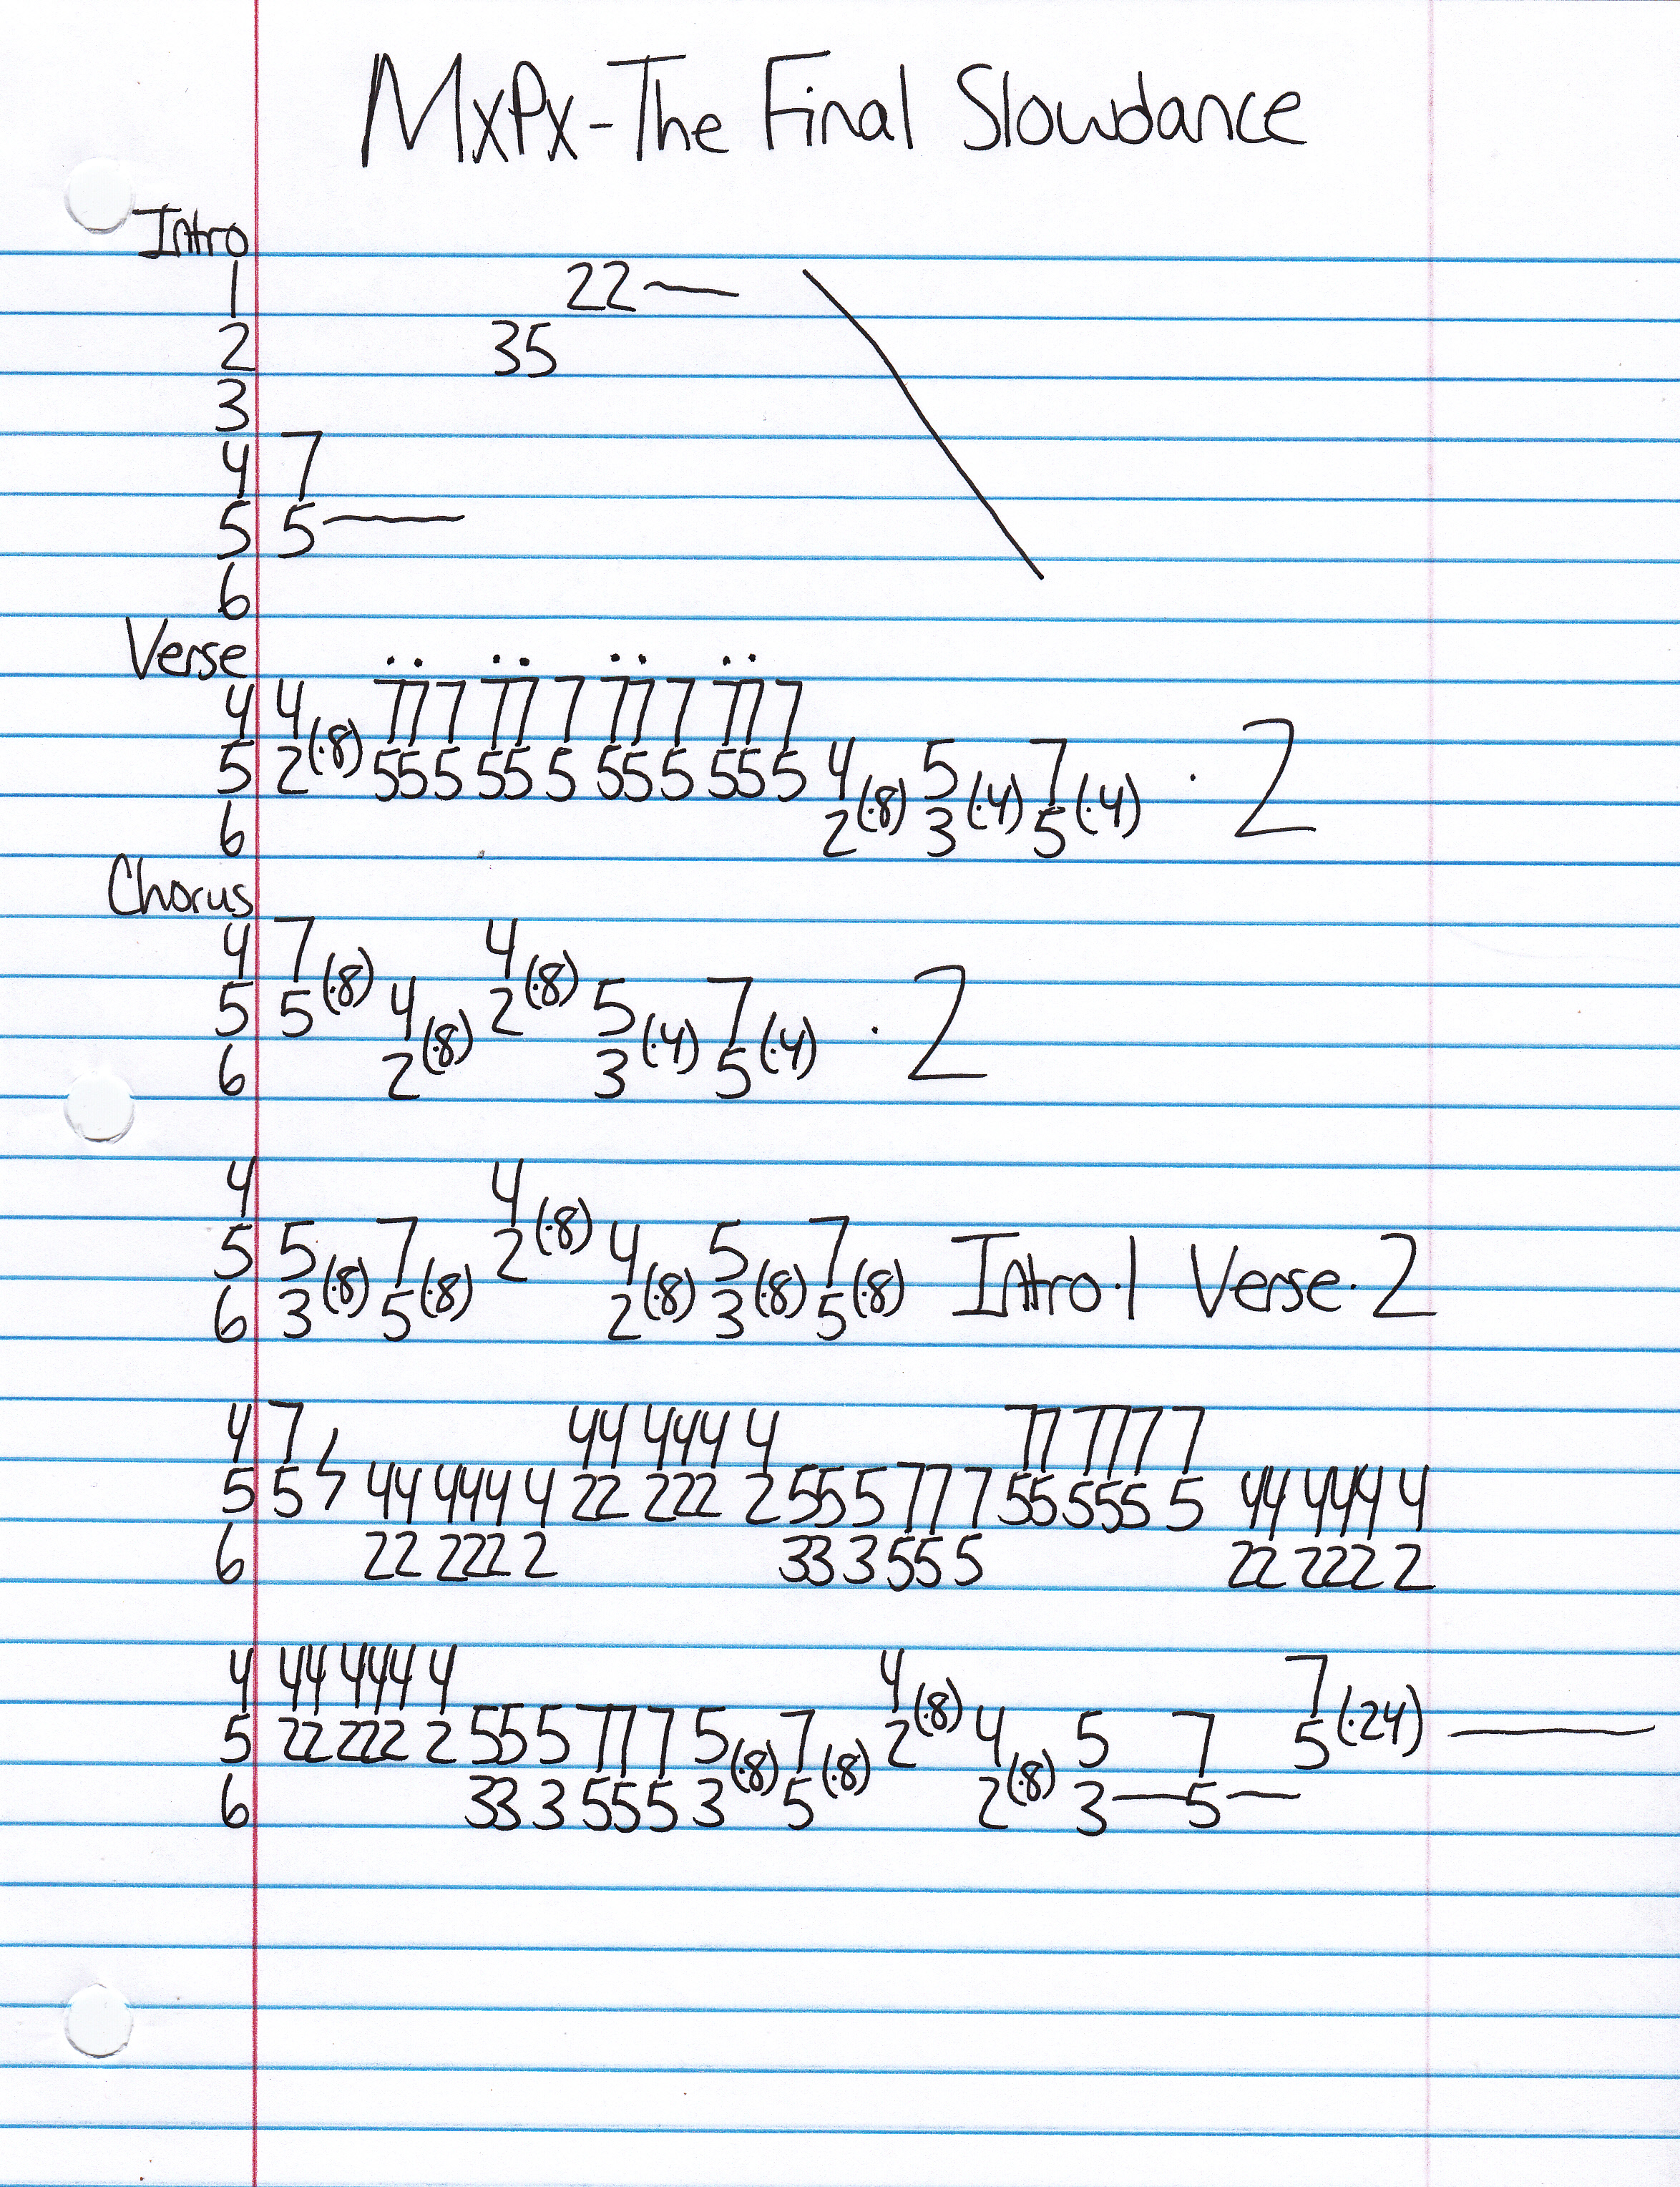 MxPx-The Final Slowdance
Intro
1 22
2 35
3
4 7
5 5
6
Verse
4 4 777 777 777 777
5 2(·8) 555 555 555 555 4 5 7 · 2
6 2(·8) 3(·4) 5(·4)
Chorus
4 7 4
5 5(·8) 4 2(·8) 5 7 · 2
6 2(·8) 3(·4) 5(·4)
4 4
5 5 7 2(·8) 4 5 7 Intro·1 Verse·2
6 3(·8) 5(·8) 2(·8) 3(·8) 5(·8)
4 7 44 444 4 77 777 7
5 5 44 444 4 22 222 2 55 5 77 7 55 555 5 44 444 4
6 22 222 2 33 3 55 5 22 222 2
4 44 444 4 4 7
5 22 222 2 55 5 77 7 5 7 2(·8) 4 5 7 5(·24)
6 33 3 55 5 3(·8) 5(·8) 2(·8) 3 5